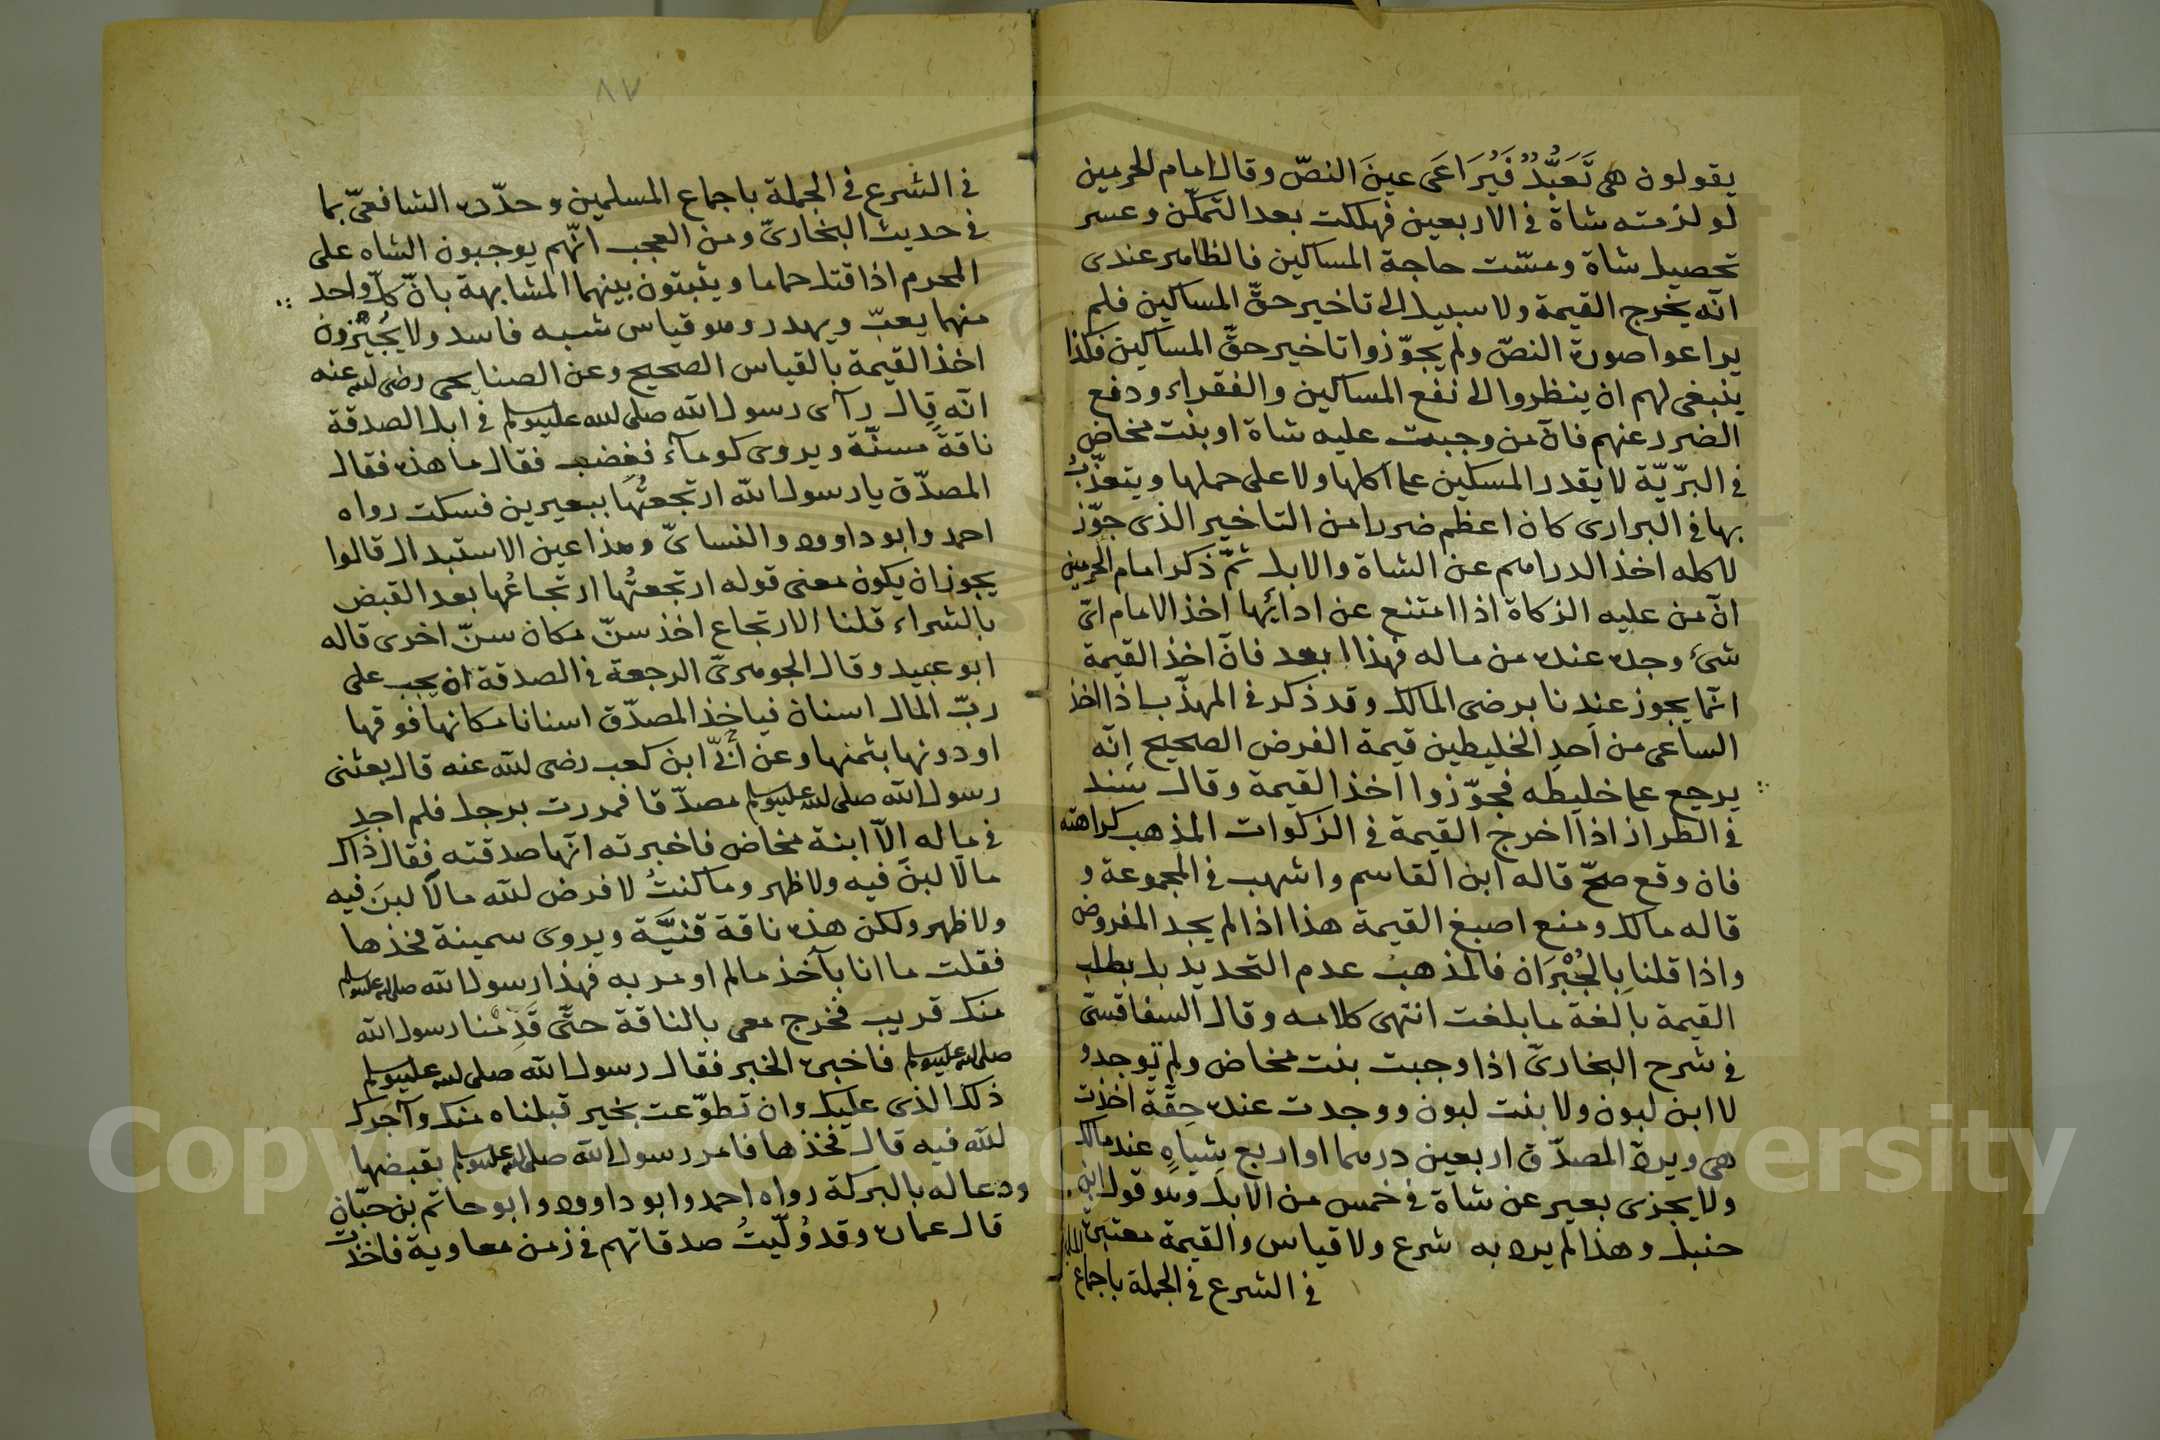 يقولون هى تَعَبُّدٌ فَيُرَاعَى عينَ النصّ وقال امام الحرمين
لو لزمته شاة فى الاربعين فهلكت بعد التمكّن وعسر
تحصيل شاة ومسّت حاجة المساكين فالظاهر عندى
انّه يخرج القيمة ولا سبيل الى تاخير حقّ المساكين فلم
يراعوا صورة النصّ ولم يجوّزوا تاخير حقّ المساكين فكذا
ينبغى لهم ان ينظروا الى نفع المساكين والفقراء ودفع
الضرر عنهم فانّ من وجبت عليه شاة او بنت مخاض
فى البرّيّة لا يقدر المسكين على اكلها ولا على حملها ويتعذّبُ
بها فى البرارى كان اعظم ضررا من التاخير الذى جوّز
لاجله اخذ الدراهم عن الشاة والابل ثمّ ذكر امام الحرمين
انّ من عليه الزكاة اذا امتنع عن ادائها اخذ الامام اىّ
شئ وجده عنده من ماله فهذا ابعد فانّ اخذ القيمة
انّما يجوز عندنا برضى المالك وقد ذكر فى المهذّب اذا اخذ
الساعى من احد الخليطين قيمة الفرض الصحيح انّه
يرجع على خليطه فجوّزوا اخذ القيمة وقال سند
فى الطراز اذا اخرج القيمة فى الزكوات المذهب كراهته
فان وقع صحّ قاله ابن القاسم واشهب فى المجموعة و
قاله مالك ومنع اصبغ القيمة هذا اذا لم يجد المفروض
واذا قلنا بِالجُبْرَان فالمذهبُ عدم التحديد بل يطلب
القيمة بالغة ما بلغت انتهى كلامه وقال السفاقسىّ
فى شرح البخارىّ اذا وجبت بنت مخاض ولم توجد و
لا ابن لبون ولا بنت لبون ووجدت عنده حِقَّة اخذت
هى ويردّ المصدّق اربعين درهما او اربع شياهٍ عند مالك
ولا يجزى بعير عن شاة فى خمس من الابل وهو قول ابن
حنبل وهذا لم يرد به شرع ولا قياس والقيمة معتبرة
فى الشرع فى الجملة باجماع
٨٧
فى الشرع فى الجملة باجماع المسلمين وحدّده الشافعىّ بما
فى حديث البخارىّ ومن العجب انّهم يوجبون الشاه على
المحرم اذا قتل حماما ويثبتون بينهما المشابهة بانّ كلّ واحد
منهما يعبّ ويهدر وهو قياس شبه فاسد ولا يُجيْزون
اخذ القيمة بالقياس الصحيح وعن الصنابحى رضى الله عنه
انّه قال رآى رسول الله صلى الله عليه وسلم فى ابل الصدقة
ناقةً مسنّة ويروى كوماء فغضب فقال ما هذه فقال
المصدّق يا رسول الله ارتجعتُها ببعيرين فسكت رواه
احمد وابو داوود والنسائىّ وهذا عين الاستبدال قالوا
يجوز ان يكون معنى قوله ارتجعتُها ارتجاعُها بعد القبض
بالشراء قلنا الارتجاع اخذ سنّ مكان سنّ اخرى قاله
ابو عبيد وقال الجوهرىّ الرجعة فى الصدقة ان يجب على
ربّ المال اسنان فياخذ المصدّق اسنانا مكانها فوقها
او دونها بثمنها وعن أُبَىّ ابن كعب رضى الله عنه قال بعثنى
رسول الله صلى الله عليه وسلم مصدّقا فمررت برجل فلم اجد
فى ماله الّا ابنة مخاض فاخبرته انّها صدقته فقال ذاك
مالا لبنَ فيه ولا ظهر وما كنتُ لاقرض لله مالا لبنَ فيه
ولا ظهر ولكن هذه ناقة فَتيَّة ويروى سمينة فخذها
فقلت ما انا بآخذ مالم اومر به فهذا رسول الله صلى الله عليه وسلم
منك قريب فخرج معى بالناقة حتّى قَدِمْنا رسول الله
صلى الله عليه وسلم فاخبره الخبر فقال رسول الله صلى الله عليه وسلم
ذلك الذى عليك وان تطوّعت بخير قبلناه منك وآجرك
لله فيه قال فخذها فامر رسول الله صلى الله عليه وسلم بقبضها
ودعا له بالبركة رواه احمد وابو داوود وابو حاتم بن حبّان
قال عماره وقد وُلّيتُ صدقاتهم فى زمن معاوية فاخذت
Copyright © King Saud University